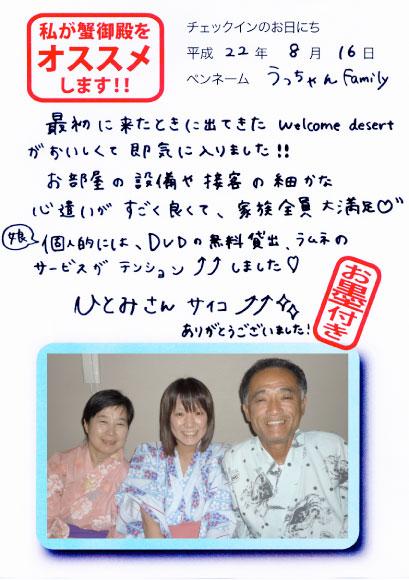 私が蟹御殿を
オススメ
します!!
チェックインのお日にち
平成 22 年 8 月 16 日
ペンネーム うっちゃんfamily
最初に来たときに出てきた Welcome desert
がおいしくて即気に入りました!!
お部屋の設備や接客の細かな
心遣いがすごく良くて、家族全員大満足♡
娘 個人的には、DVDの無料貸出、ラムネの
サービスがテンション⤴⤴しました♡
ひとみさん サイコー⤴⤴
ありがとうございました!
お墨付き